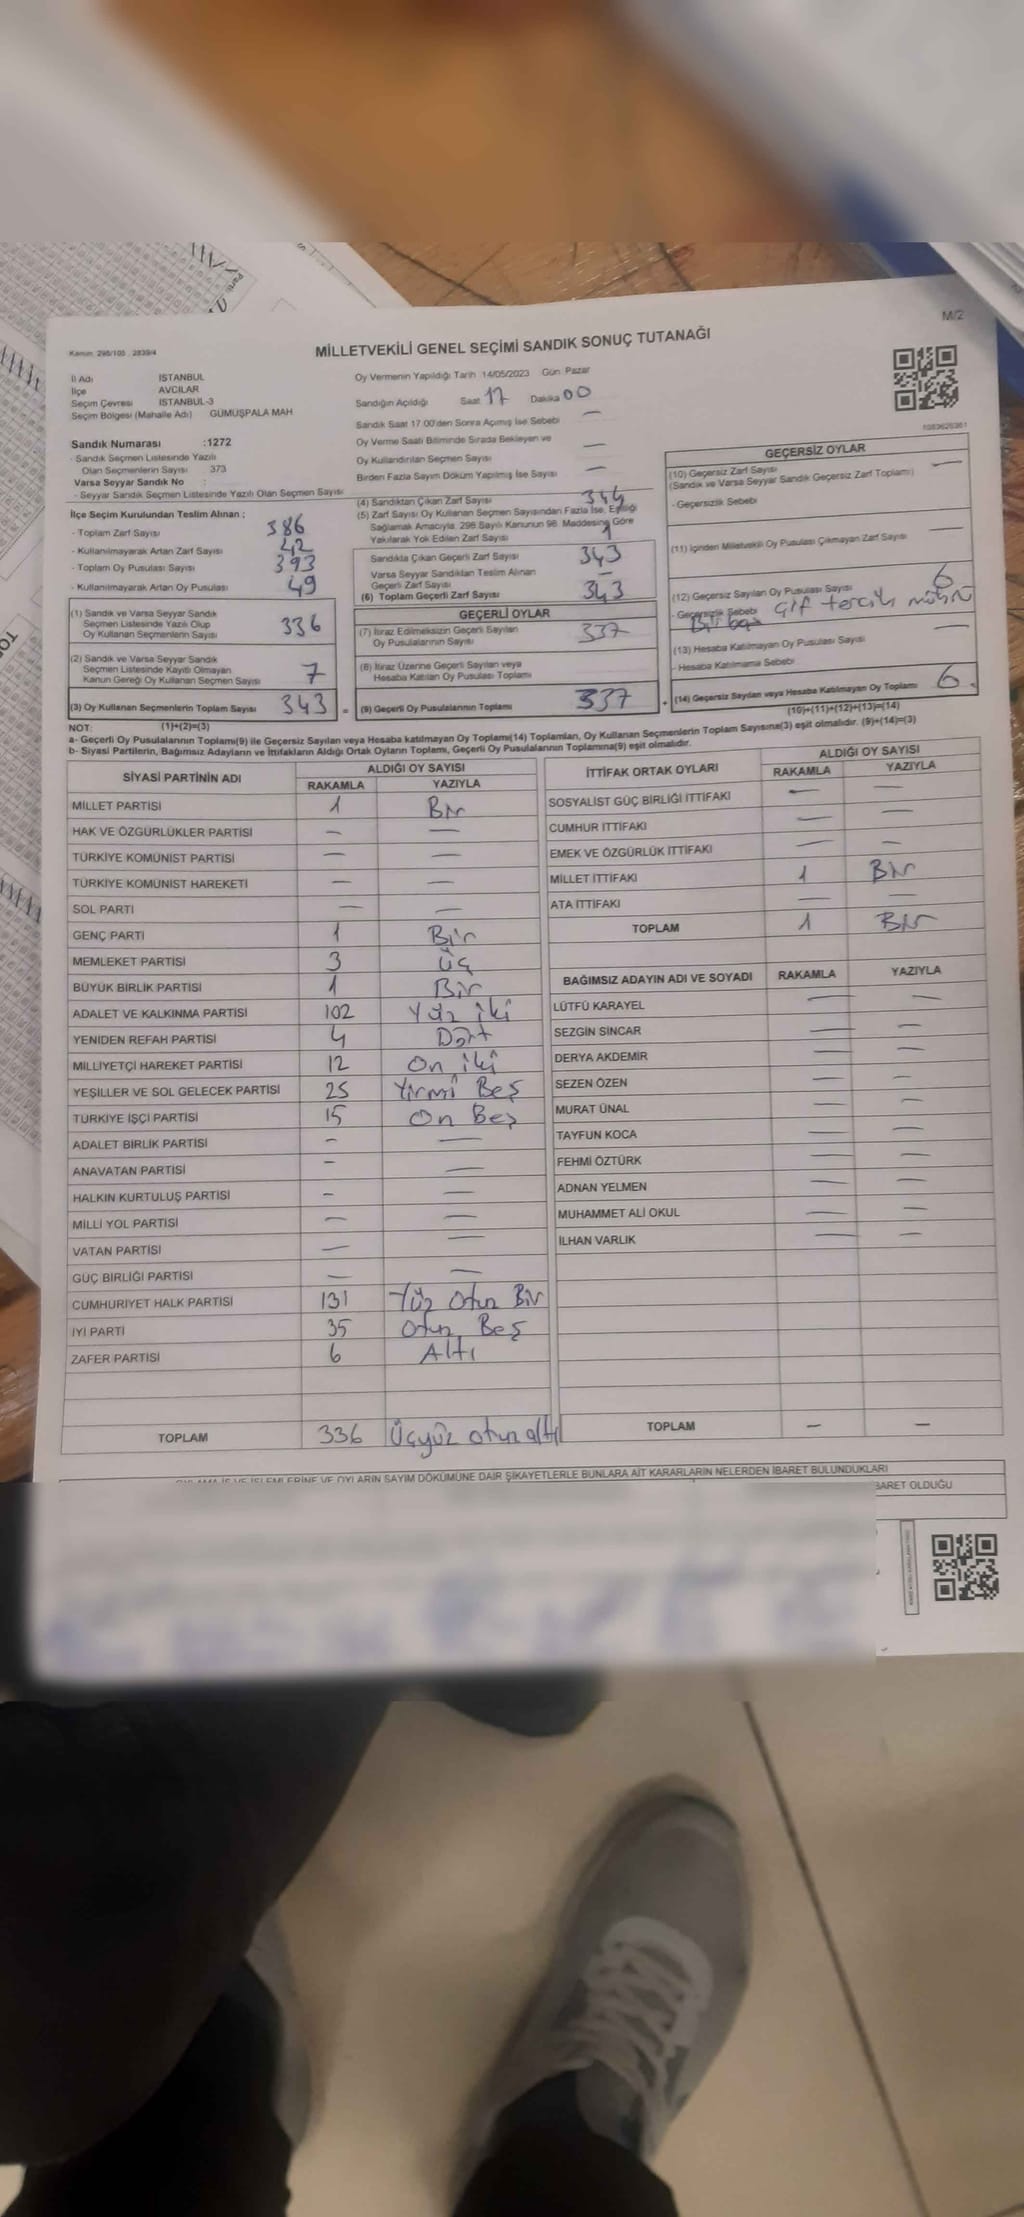 M/2
Kanun: 298/105 , 2839/4
MİLLETVEKİLİ GENEL SEÇİMİ SANDIK SONUÇ TUTANAĞI
İl Adı İSTANBUL
İlçe AVCILAR
Seçim Çevresi İSTANBUL-3
Seçim Bölgesi (Mahalle Adı) GÜMÜŞPALA MAH
Sandık Numarası :1272
- Sandık Seçmen Listesinde Yazılı
Olan Seçmenlerin Sayısı 373
Varsa Seyyar Sandık No :
- Seyyar Sandık Seçmen Listesinde Yazılı Olan Seçmen Sayısı
Oy Vermenin Yapıldığı Tarih :14/05/2023 Gün: Pazar
Sandığın Açıldığı Saat 17 Dakika 00
Sandık Saat 17.00'den Sonra Açımış İse Sebebi —
Oy Verme Saati Bitiminde Sırada Bekleyen ve
Oy Kullandırılan Seçmen Sayısı —
Birden Fazla Sayım Döküm Yapılmış İse Sayısı —
İlçe Seçim Kurulundan Teslim Alınan ;
- Toplam Zarf Sayısı 386
- Kullanılmayarak Artan Zarf Sayısı 42
- Toplam Oy Pusulası Sayısı 393
- Kullanılmayarak Artan Oy Pusulası 49
(1) Sandık ve Varsa Seyyar Sandık
Seçmen Listesinde Yazılı Olup
Oy Kullanan Seçmenlerin Sayısı 336
(2) Sandık ve Varsa Seyyar Sandık
Seçmen Listesinde Kayıtlı Olmayan
Kanun Gereği Oy Kullanan Seçmen Sayısı 7
(3) Oy Kullanan Seçmenlerin Toplam Sayısı 343
(4) Sandıktan Çıkan Zarf Sayısı 344
(5) Zarf Sayısı Oy Kullanan Seçmen Sayısından Fazla İse, Eşitliği
Sağlamak Amacıyla, 298 Sayılı Kanunun 98. Maddesine Göre
Yakılarak Yok Edilen Zarf Sayısı 1
Sandıkta Çıkan Geçerli Zarf Sayısı 343
Varsa Seyyar Sandıktan Teslim Alınan
Geçerli Zarf Sayısı —
(6) Toplam Geçerli Zarf Sayısı 343
GEÇERLİ OYLAR
(7) İtiraz Edilmeksizin Geçerli Sayılan
Oy Pusulalarının Sayısı 337
(8) İtiraz Üzerine Geçerli Sayılan veya
Hesaba Katılan Oy Pusulası Toplamı
= (9) Geçerli Oy Pusulalarının Toplamı 337
1083626361
GEÇERSİZ OYLAR
(10) Geçersiz Zarf Sayısı —
(Sandık ve Varsa Seyyar Sandık Geçersiz Zarf Toplamı)
- Geçersizlik Sebebi
(11) İçinden Milletvekili Oy Pusulası Çıkmayan Zarf Sayısı —
(12) Geçersiz Sayılan Oy Pusulası Sayısı 6
- Geçersizlik Sebebi Çift tercih mührü
(13) Hesaba Katılmayan Oy Pusulası Sayısı —
- Hesaba Katılmama Sebebi
+ (14) Geçersiz Sayılan veya Hesaba Katılmayan Oy Toplamı 6
NOT: (1)+(2)=(3) (10)+(11)+(12)+(13)=(14)
a- Geçerli Oy Pusulalarının Toplamı(9) ile Geçersiz Sayılan veya Hesaba katılmayan Oy Toplamı(14) Toplamları, Oy Kullanan Seçmenlerin Toplam Sayısına(3) eşit olmalıdır. (9)+(14)=(3)
b- Siyasi Partilerin, Bağımsız Adayların ve İttifakların Aldığı Ortak Oyların Toplamı, Geçerli Oy Pusulalarının Toplamına(9) eşit olmalıdır.
SİYASİ PARTİNİN ADI ALDIĞI OY SAYISI
RAKAMLA YAZIYLA
MİLLET PARTİSİ 1 Bir
HAK VE ÖZGÜRLÜKLER PARTİSİ — —
TÜRKİYE KOMÜNİST PARTİSİ — —
TÜRKİYE KOMÜNİST HAREKETİ — —
SOL PARTİ — —
GENÇ PARTİ 1 Bir
MEMLEKET PARTİSİ 3 Üç
BÜYÜK BİRLİK PARTİSİ 1 Bir
ADALET VE KALKINMA PARTİSİ 102 Yüz iki
YENİDEN REFAH PARTİSİ 4 Dört
MİLLİYETÇİ HAREKET PARTİSİ 12 On iki
YEŞİLLER VE SOL GELECEK PARTİSİ 25 Yirmi Beş
TÜRKİYE İŞÇİ PARTİSİ 15 On Beş
ADALET BİRLİK PARTİSİ — —
ANAVATAN PARTİSİ — —
HALKIN KURTULUŞ PARTİSİ — —
MİLLİ YOL PARTİSİ — —
VATAN PARTİSİ — —
GÜÇ BİRLİĞİ PARTİSİ — —
CUMHURİYET HALK PARTİSİ 131 Yüz Otuz Bir
İYİ PARTİ 35 Otuz Beş
ZAFER PARTİSİ 6 Altı
TOPLAM 336 Üçyüz otuz altı
İTTİFAK ORTAK OYLARI ALDIĞI OY SAYISI
RAKAMLA YAZIYLA
SOSYALİST GÜÇ BİRLİĞİ İTTİFAKI — —
CUMHUR İTTİFAKI — —
EMEK VE ÖZGÜRLÜK İTTİFAKI — —
MİLLET İTTİFAKI 1 Bir
ATA İTTİFAKI — —
TOPLAM 1 Bir
BAĞIMSIZ ADAYIN ADI VE SOYADI RAKAMLA YAZIYLA
LÜTFÜ KARAYEL — —
SEZGİN SİNCAR — —
DERYA AKDEMİR — —
SEZEN ÖZEN — —
MURAT ÜNAL — —
TAYFUN KOCA — —
FEHMİ ÖZTÜRK — —
ADNAN YELMEN — —
MUHAMMET ALİ OKUL — —
İLHAN VARLIK — —
TOPLAM — —
OYLAMA İŞ VE İŞLEMLERİNE VE OYLARIN SAYIM DÖKÜMÜNE DAİR ŞİKAYETLERLE BUNLARA AİT KARARLARIN NELERDEN İBARET BULUNDUKLARI
BARET OLDUĞU